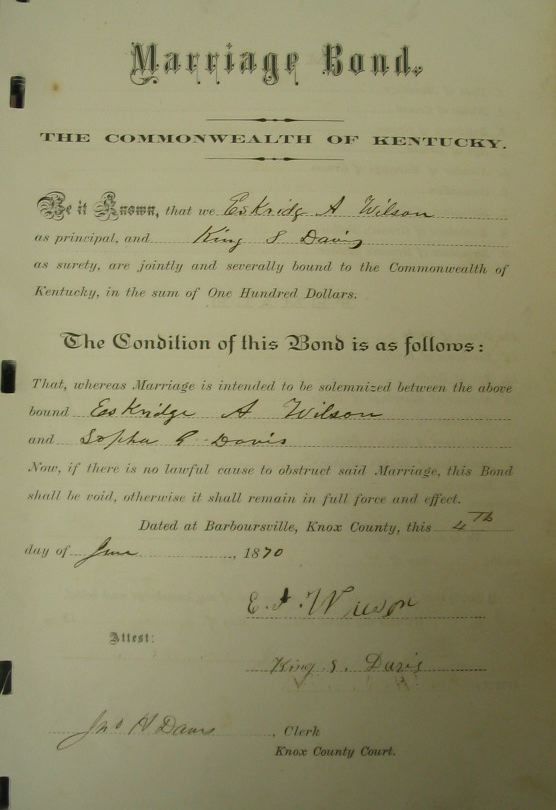 Marriage Bond.
THE COMMONWEALTH OF KENTUCKY.
Be it Known, that we Eskridg A Wilson
as principal, and King S Davis
as surety, are jointly and severally bound to the Commonwealth of
Kentucky, in the sum of One Hundred Dollars.
The Condition of this Bond is as follows:
That, whereas Marriage is intended to be solemnized between the above
bound Eskridge A Wilson
and Sopha E Davis
Now, if there is no lawful cause to obstruct said Marriage, this Bond
shall be void, otherwise it shall remain in full force and effect.
Dated at Barboursville, Knox County, this 4th
day of June, 1870
E. A. Wilson
Attest:
King S. Davis
Jno H Davis, Clerk
Knox County Court.